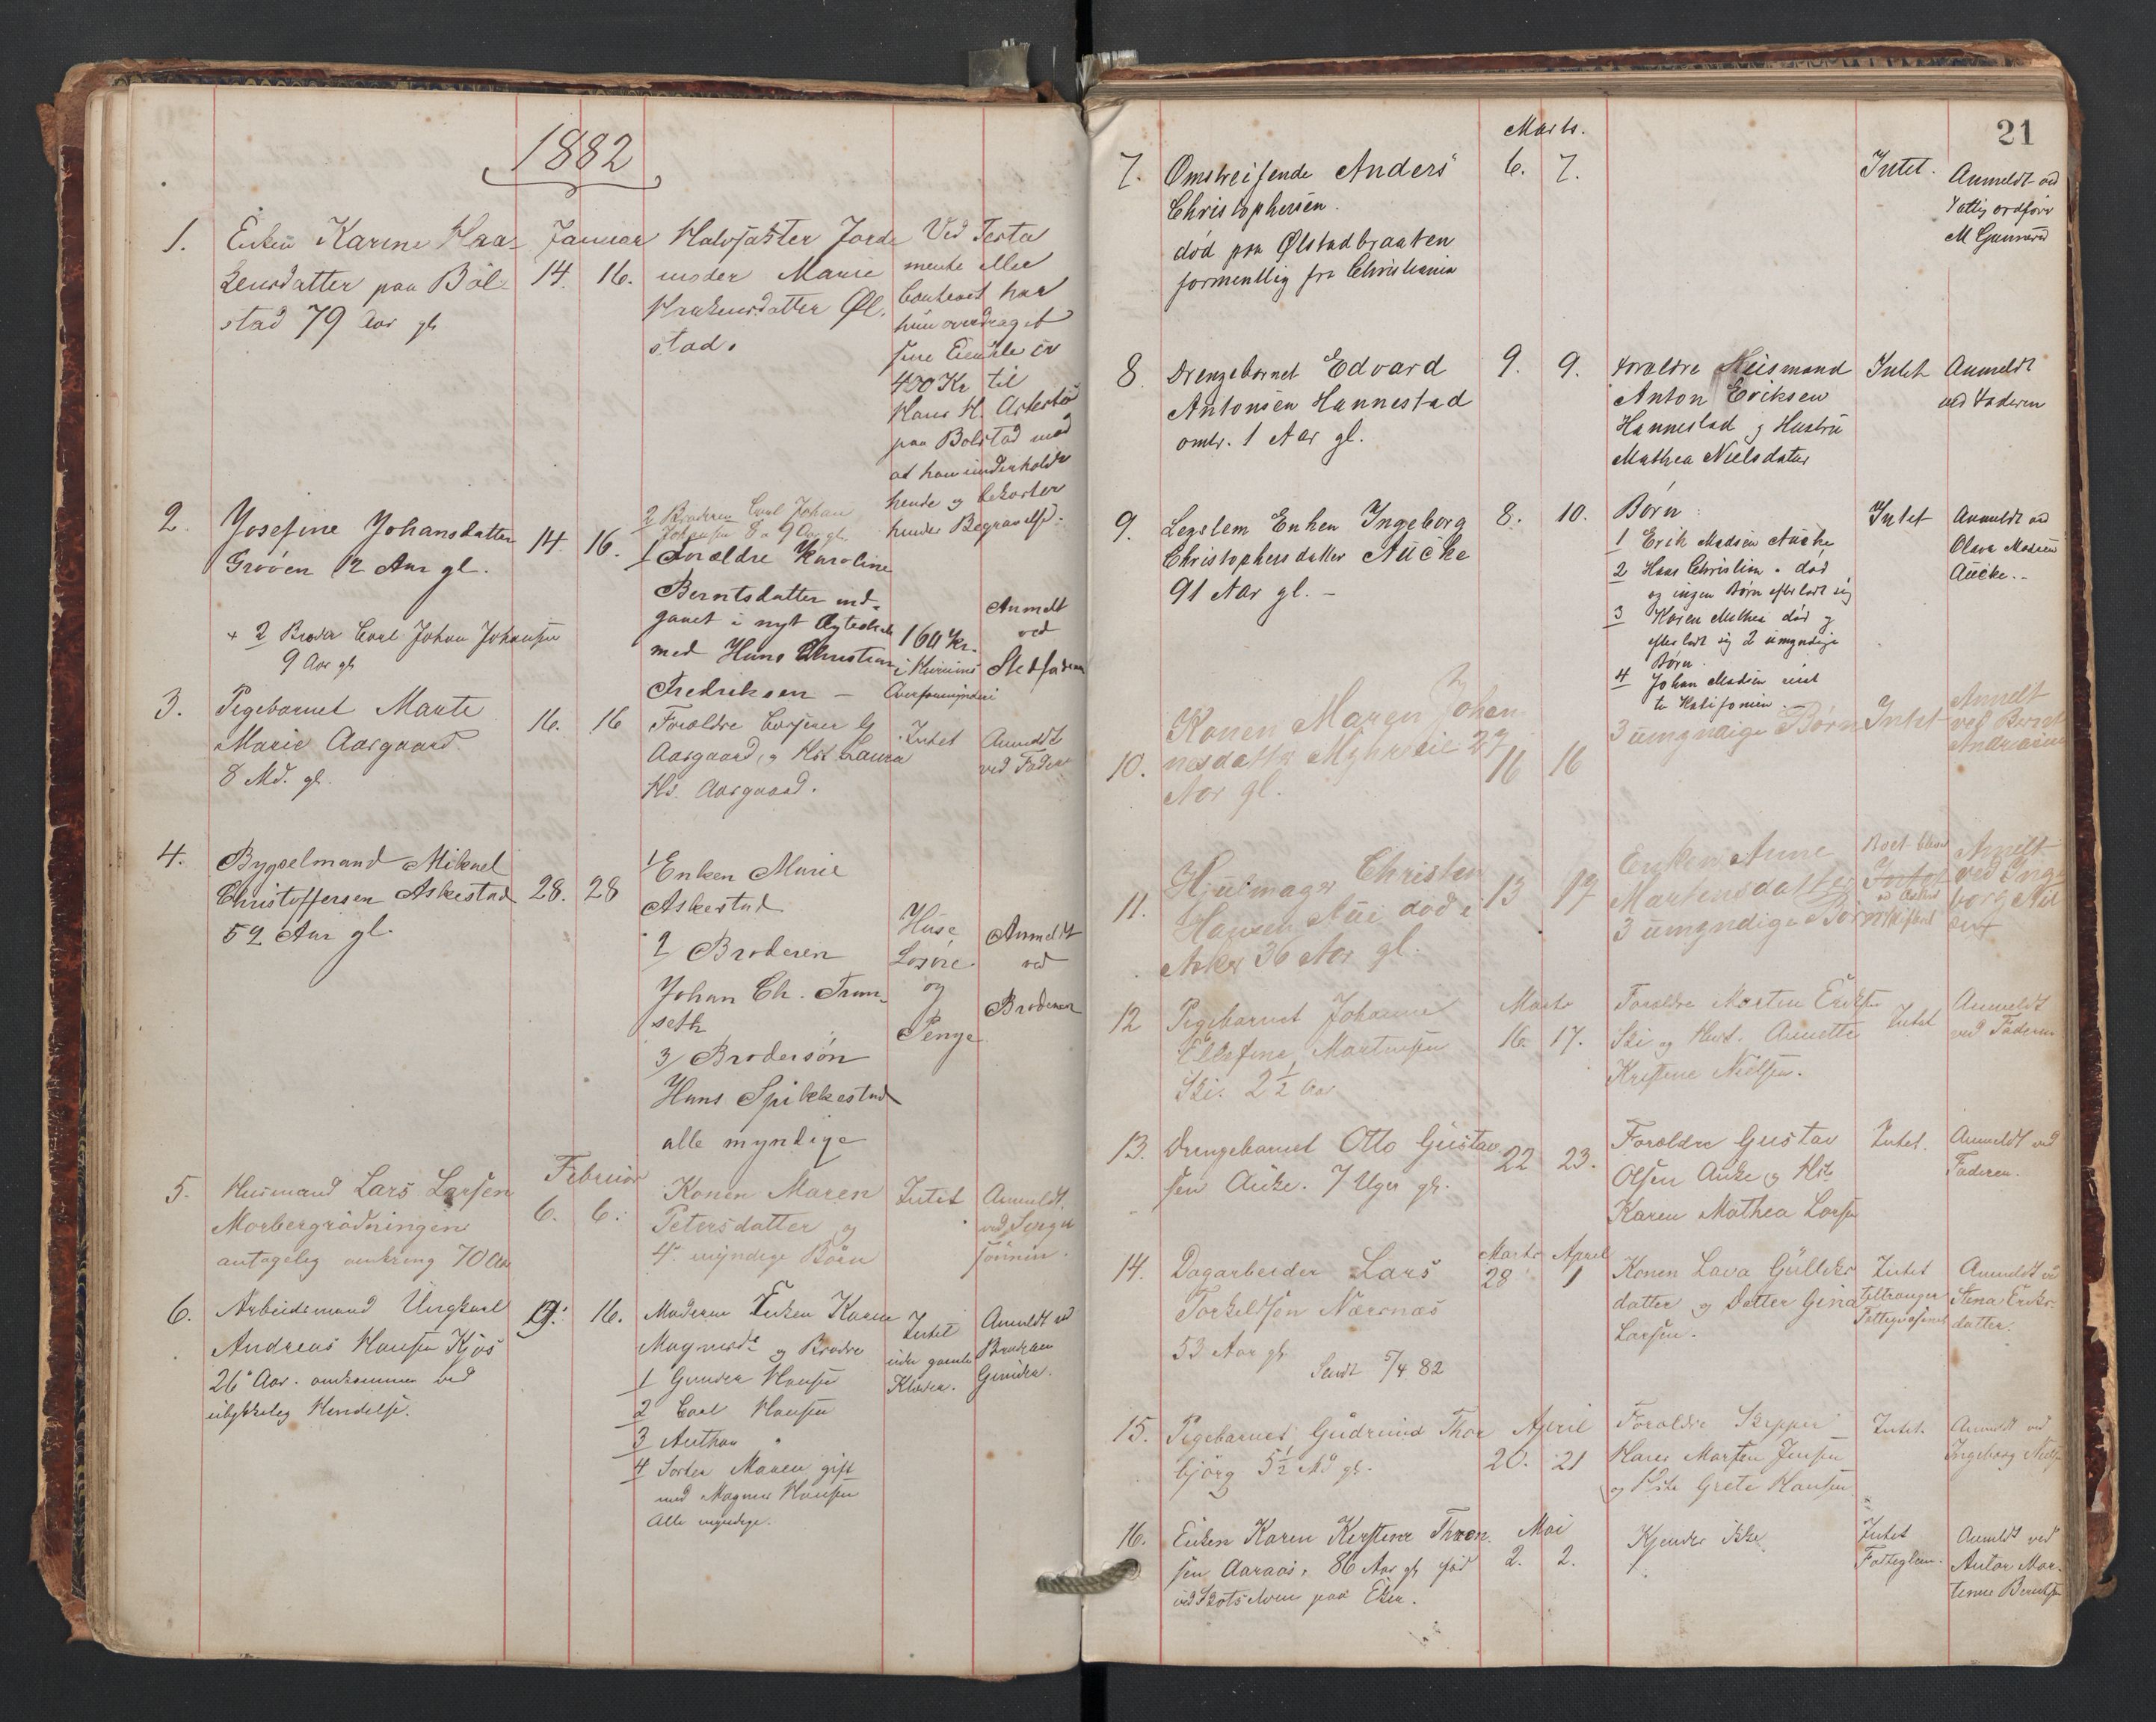 1882
1. Enken Karine Haa-
kensdatter paa Böl-
stad 79 Aar gl
Januar
14. 16.
Halvsøster Jorde
moder Marie
Haakensdatter Øl-
stad.
Ved Testa
mente eller
Contract har
hun overdraget
sine Eiendele ca
400 Kr til
Hans H. Askestad
paa Bolstad mod
at han underholder
hende og bekoster
hendes Begravelse.
2. Josefine Johansdatter
Gröven 12 Aar gl.
+ 2 Broder Carl Johan Johansen
9 Aar gl
14. 16.
2 Broderen Carl Johan
Johansen 8 a 9 Aar gl.
1 Forældre Karoline
Berntsdatter ind-
gaaet i nyt Ægteskab
med Hans Christian
Fredriksen —
160 Kr.
i Hurums
Overformynderi
Anmeldt
ved
Stedfaderen
3. Pigebarnet Marte
Marie Aasgaard
8 Md. gl.
16. 16
Forældre
Aasgaard, og Hst Laura
Hs. Aasgaard.
Intet
Anmeldt
ved Faderen
4. Bygselmand Mikael
Christoffersen Askestad
52 Aar gl.
28. 28
1 Enken Marie
Askestad
2 Broderen
Johan Ch. Tran-
seth
3/ Brodersön
Hans Spikkestad
alle myndige
Huse
Losöre
og
Penge
Anmeldt
ved
Broderen
5. Husmand Lars Larsen
Morbergrödningen
antagelig omkring 70 Aar
Februar
6. 6.
Konen Maren
Petersdatter og
4 myndige Börn
Intet
Anmeldt
ved Sviger
sönnen.
6. Arbeidsmand Ungkarl
Andreas Hansen Kjös
26 Aar. omkommen ved
ulykkelig Hendelse.
9. 16.
Moderen Enken Karen
Magnusdr og Brødre
1 Gunder Hansen
2 Carl Hansen
3 Anthon "
4 Söster Maren gift
med Magnus Hansen
Alle myndige.
Intet
uden gamle
Klæder.
Anmeldt ved
Broderen
Gunder.
21
Marts.
7. Omstreifende Anders
Christophersen.
död paa Ølstadbraaten
formentlig fra Christiania
6. 7.
Intet.
Anmeldt ved
Fattigordförer
M Gunnerud
8. Drengebarnet Edvard
Antonsen Hannestad
omtr. 1 Aar gl.
9. 9.
Foraldre Husmand
Anton Eriksen
Hannestad og Hustru
Mathea Nielsdatter
Intet
Anmeldt
ved Faderen
9. Legslem Enken Ingeborg
Christophersdatter Aücke
91 Aar gl. —
8. 10.
Börn:
1 Erik Madsen Aücke
2 Hans Christian . död
og ingen Börn efterladt sig
3 Karen Mathea död og
efterladt sig 2 umyndige
Börn.
4 Johan Madsen reist
til Kalifornien.
Intet
Anmeldt ved
Olava Madsen
Aücke. -
10. Konen Maren Johan
nesdatter Myhreeie 27
Aar gl.
16 16
3 umyndige Börn
Intet
Anmeldt
ved Bernt
Andreasen
11. Hjulmager Christian
Hansen Aue död i
Asker 36 Aar gl.
13 17
Enken Anne
Martensdatter
3 umyndige Börn
Boet blev
Intet
Skifteret
Anmeldt
ved Inge
borg
12 Pigebarnet Johanne
Ellefine Martinsen
Ski. 2 1/2 Aar
Marts
16. 17.
Forældre Morten Eriksen
Ski og Hust. Annette
Kristine Nielsen.
Intet
Anmeldt
ved Faderen
13. Drengebarnet Otto Gustav
sen Auke. 7 Uger gl.
22 23.
Forældre Gustav
Olsen Auke og Hst
Karen Mathea Larsen
Intet.
Anmeldt ved
Faderen.
14. Dagarbeider Lars
Torkeldsen Nærsnæs
53 Aar gl
Sendt 5/4 82
Marts April
28 1
Konen Lava Gullicks
datter og Datter Gina
Larsen.
Intet
tiltrænger
Fattigvæsenet
Anmeldt ved
Stena Eriks-
datter.
15. Pigebarnet Gudrund Thor
björg 5 1/2 Md gl.
April
20. 21
Forældre Skipper
Hans Morten Jensen
og Hst Grete Hansen
Intet.
Anmeldt ved
Ingeborg Niels
16. Enken Karen Kirstine Thoen
sen Aaraas, 86 Aar gl född
ved Skotselven paa Eker.
Mai
2. 2.
Kjendes ikke
Intet
Fatteglem.
Anmeldt ved
Anton Mar-
tinius Berntsen